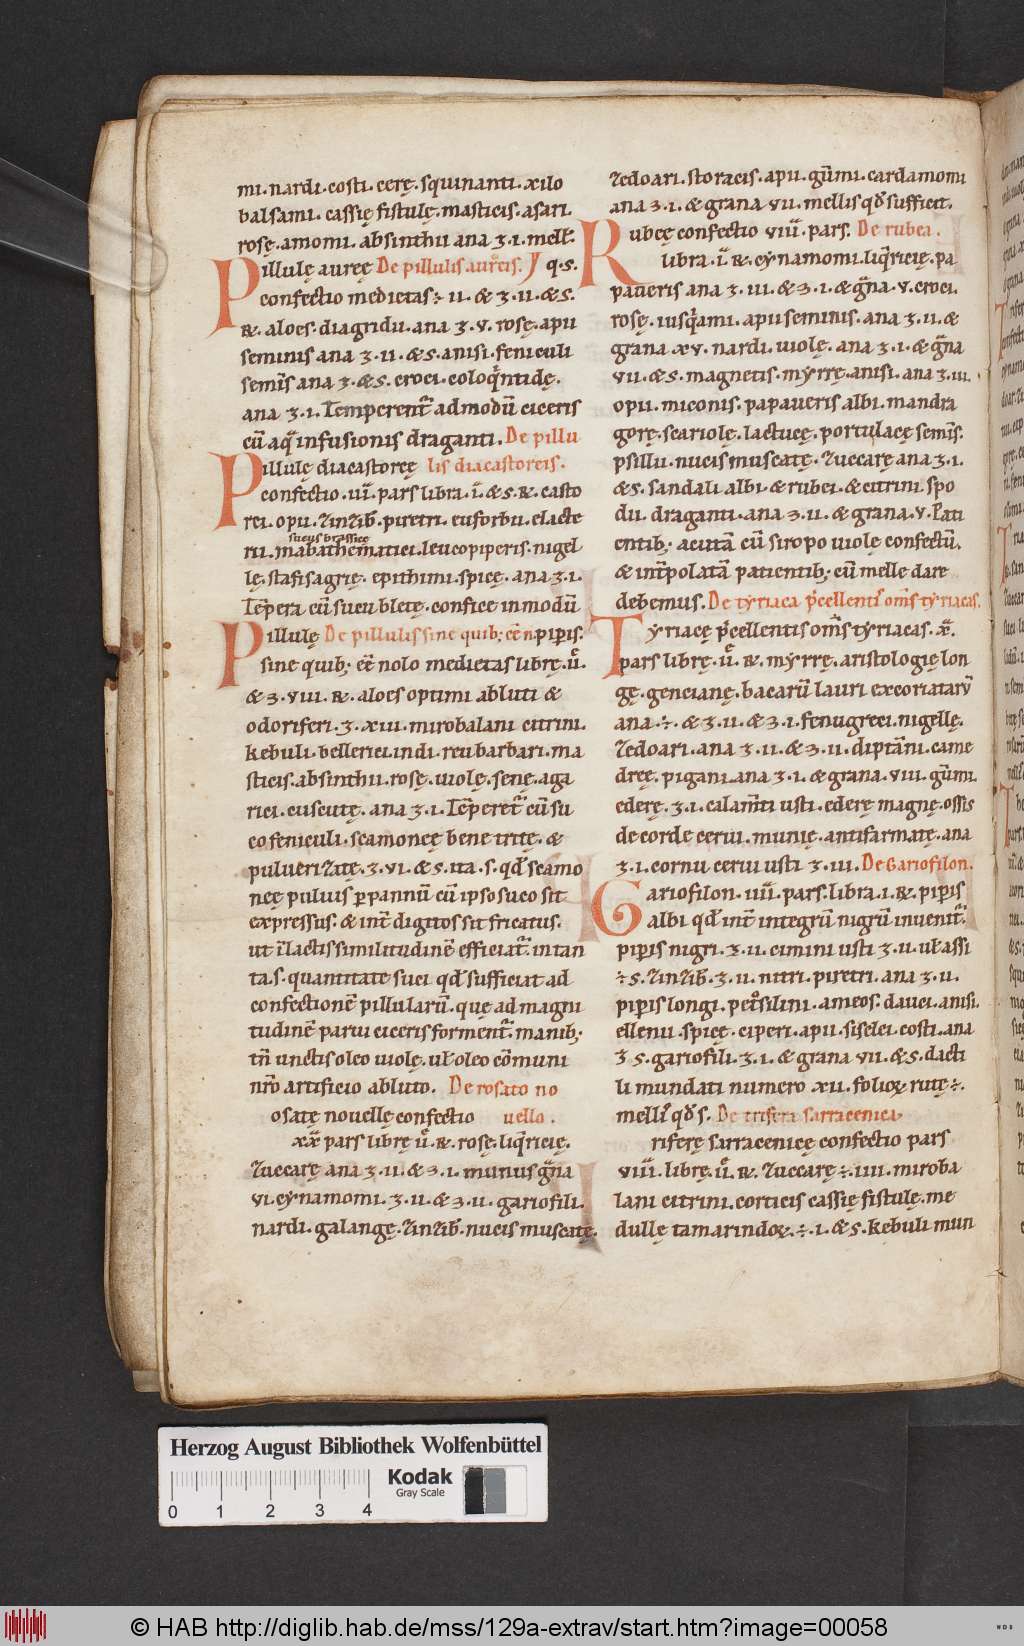 mi. nardi. costi. cerę. squinanti. xilo
balsami. cassię fistulę. masticis. asari.
rosę. amomi. absinthii ana ʒ. i. mell̄.
Pillulę aureę De pillulis aureis. q. s.
confectio medietas ÷ ii. & ʒ. ii. & s.
R. aloes. diagridii. ana ʒ. v. rosę. apii
seminis ana ʒ. ii. & s. anisi. feniculi
sem̄is ana ʒ. & s. croci. coloq̄ntidę.
ana ʒ. i. Temperent̄ ad modū ciceris
cū aq̄ infusionis draganti. De pillu
Pillulę diacastoreę lis diacastoreis.
confectio. iiī. pars libra. ī. & s. R. casto
rei. opii. zinzib̄. piretri. euforbii. elacte
sucus brassice
rii. mabathematici. leucopiperis. nigel
lę. stafisagrię. epithimi. spicę. ana ʒ. i.
Tēpera cū sucu bletę. confice in modū
Pillulę De pillulis sine quib; eē n piꝑis.
sine quib; eē nolo medietas librę. ū.
& ʒ. viii. R. aloes optimi abluti &
odoriferi. ʒ. xiii. mirobalani citrini.
kebuli. bellerici. indi. reubarbari. ma
sticis. absinthii. rosę. violę. senę. aga
rici. cuscutę. ana ʒ. i. Tēperet̄ cū su
co feniculi. scamoneę bene tritę. &
pulverizatę. ʒ. vi. & s. ita. s. qd̄ scamo
neę pulvis ꝑ pannū cū ipso suco sit
expressus. & int̄ digitos sit fricatus.
ut ī lactis similitudinē efficiat̄. in tan
ta. s. quantitate suci qd̄ sufficiat ad
confectionē pillularū. quę ad magni
tudinē parvi ciceris forment̄. manib;
tn̄ unctis oleo violę. ul̄ oleo cōmuni
nr̄o artificio abluto. De rosato no
osatę novellę confectio vello.
xx̄ pars librę ū. R. rosę. liq̄ricię.
zuccarę ana ʒ. ii. & ʒ. i. minus ḡna
vi. cynamomi. ʒ. ii. & ʒ. ii. gariofili.
nardi. galangę. zinzib̄. nucis muscatę.
zedoari. storacis. apii. gūmi. cardamomi
ana ʒ. i. & grana vii. mellis qd̄ sufficit.
Rubeę confectio viiī. pars. De rubea.
libra. ī. R. cynamomi. liq̄ricię. pa
paveris ana ʒ. iii. & ʒ. i. & ḡna. v. croci.
rosę. iusq̄ami. apii seminis. ana ʒ. ii. &
grana xv. nardi. violę. ana ʒ. i. & ḡna
vii. & s. magnetis. myrrę. anisi. ana ʒ. iii.
opii. miconis. papaveris albi. mandra
gorę. scariolę. lactucę. portulacę sem̄is.
psillii. nucis muscatę. zuccarę ana ʒ. i.
& s. sandali albi. & rubei. & citrini. spo
dii. draganti. ana ʒ. ii. & grana. v. Pati
entib; acutā cū siropo violę confectū.
& int̄polatā patientib; cū melle dare
debemus. De tyriaca p̄cellenti om̄s tyriacas.
Tyriacę p̄cellentis om̄s tyriacas. x̄.
pars librę. ū. R. myrrę. aristologię lon
gę. gencianę. bacarū lauri excoriatarū
ana. ÷. & ʒ. ii. & ʒ. i. fenugreci. nigellę.
zedoari. ana ʒ. ii. & ʒ. ii. diptāni. came
dreę. pigani. ana ʒ. i. & grana. viii. gūmi.
ederę. ʒ. i. calam̄ti usti. ederę magnę. ossis
de corde cervi. munię. antifarmatę. ana
ʒ. i. cornu cervi usti ʒ. iii. De Gariofilon.
Gariofilon. iiiī. pars. libra. i. R. piꝑis
albi qd̄ int̄ integrū nigrū invenit̄.
piꝑis nigri. ʒ. ii. cimini usti ʒ. ii. ul̄ assi
÷ s. zinzib̄. ʒ. ii. nitri. piretri. ana ʒ. ii.
piꝑis longi. pet̄silini. ameos. dauci. anisi.
ellenii. spicę. ciperi. apii. siselei. costi. ana
ʒ s. gariofili. ʒ. i. & grana vii. & s. dacti
li mundati numero xii. folioꝝ rutę ÷.
melli' qd̄ s. De trifera sarracenica
riferę sarracenicę confectio pars
viiī. librę. ū. R. zuccarę. ÷. iiii. miroba
lani citrini. corticis cassię fistulę. me
dullę tamarindoꝝ. ÷. i. & s. kebuli mun
Herzog August Bibliothek Wolfenbüttel
Kodak
Gray Scale
0 1 2 3 4
© HAB http://diglib.hab.de/mss/129a-extrav/start.htm?image=00058